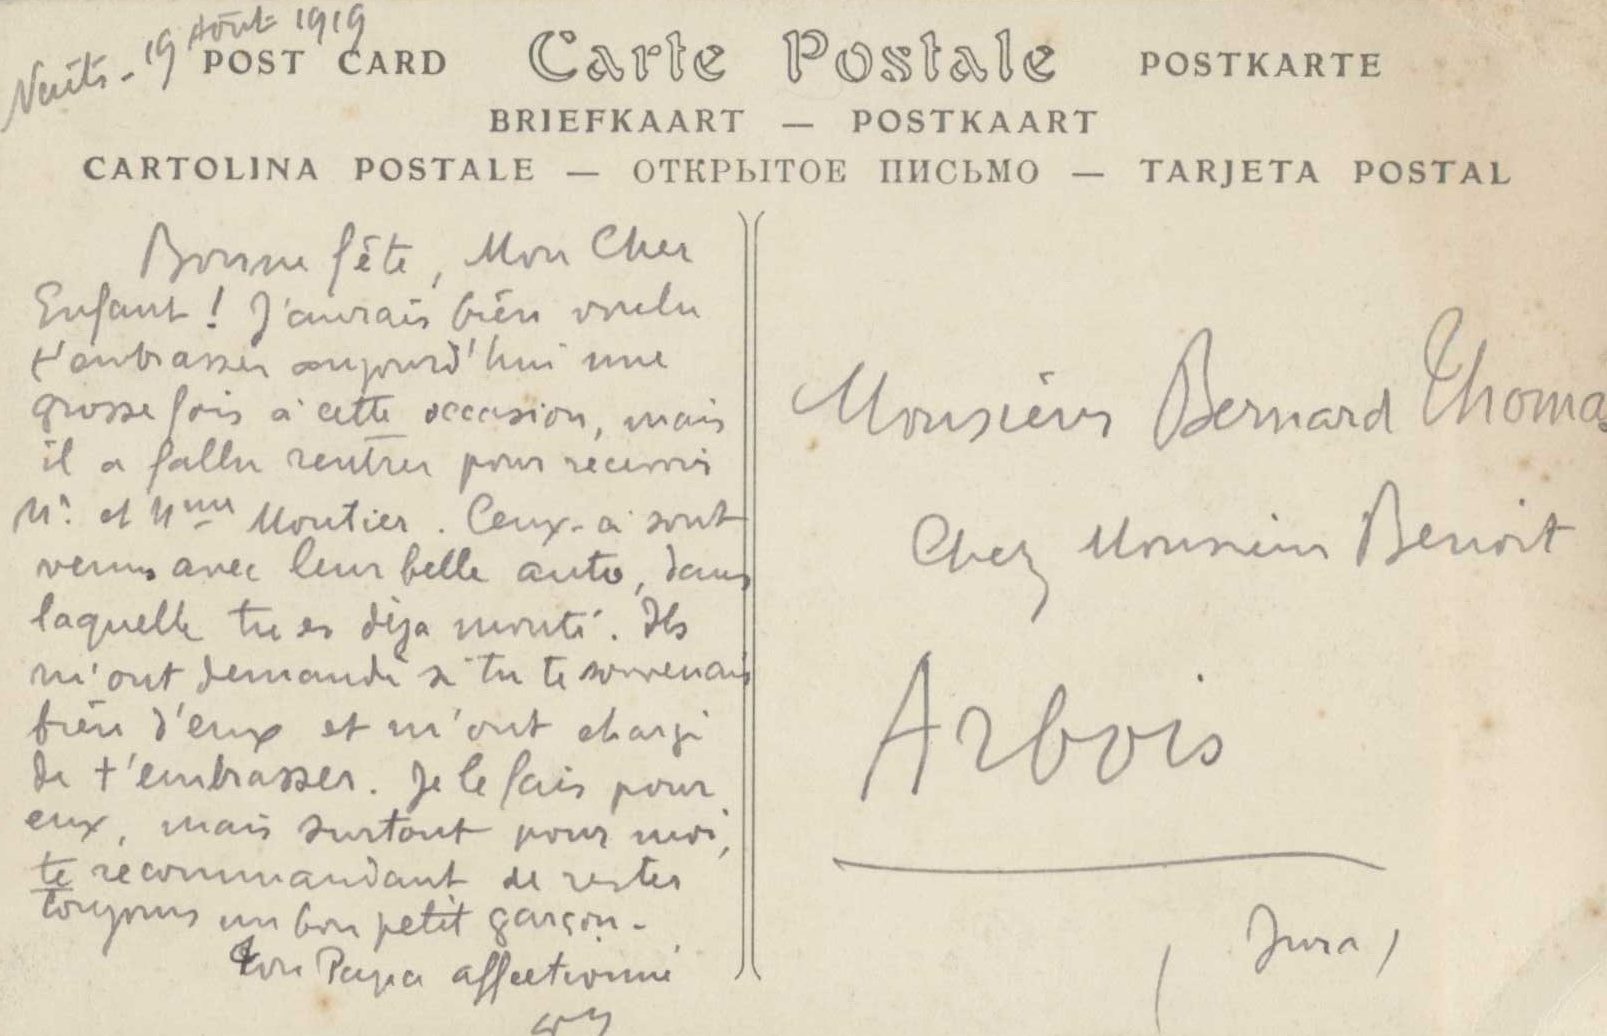 Nuits - 19 Août 1919
POST CARD Carte Postale POSTKARTE
BRIEFKAART — POSTKAART
CARTOLINA POSTALE — ОТКРЫТОЕ ПИСЬМО — TARJETA POSTAL
Bonne fête, Mon Cher
Enfant ! J'aurais bien voulu
t'embrasser aujourd'hui une
grosse fois à cette occasion, mais
il a fallu rentrer pour recevoir
Mr. et Mme Moutier. Ceux-ci sont
venus avec leur belle auto, dans
laquelle tu es déja monté. Ils
m'ont demandé si tu te souvenais
bien d'eux et m'ont chargé
de t'embrasser. Je le fais pour
eux, mais surtout pour moi,
te recommandant de rester
toujours un bon petit garçon.
Ton Papa affectionné
Monsieur Bernard Thomas
Chez Monsieur Benoit
Arbois
(Jura)